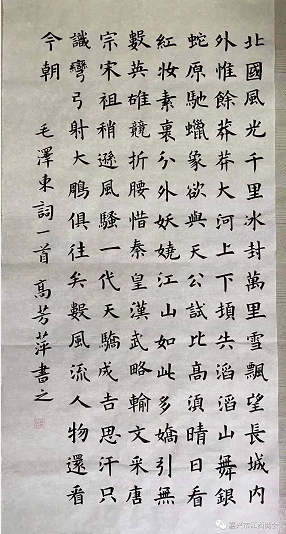 北國風光千里冰封萬里雪飄望長城内
外惟餘莽莽大河上下頓失滔滔山舞銀
蛇原馳蠟象欲與天公試比高湏晴日看
紅妝素裹分外妖嬈江山如此多嬌引無
數英雄競折腰惜秦皇漢武略輸文采唐
宗宋祖稍遜風騷一代天驕成吉思汗只
識彎弓射大鵰俱往矣數風流人物還看
今朝 毛澤東詞一首 高芳萍書之
嘉兴市江西商会